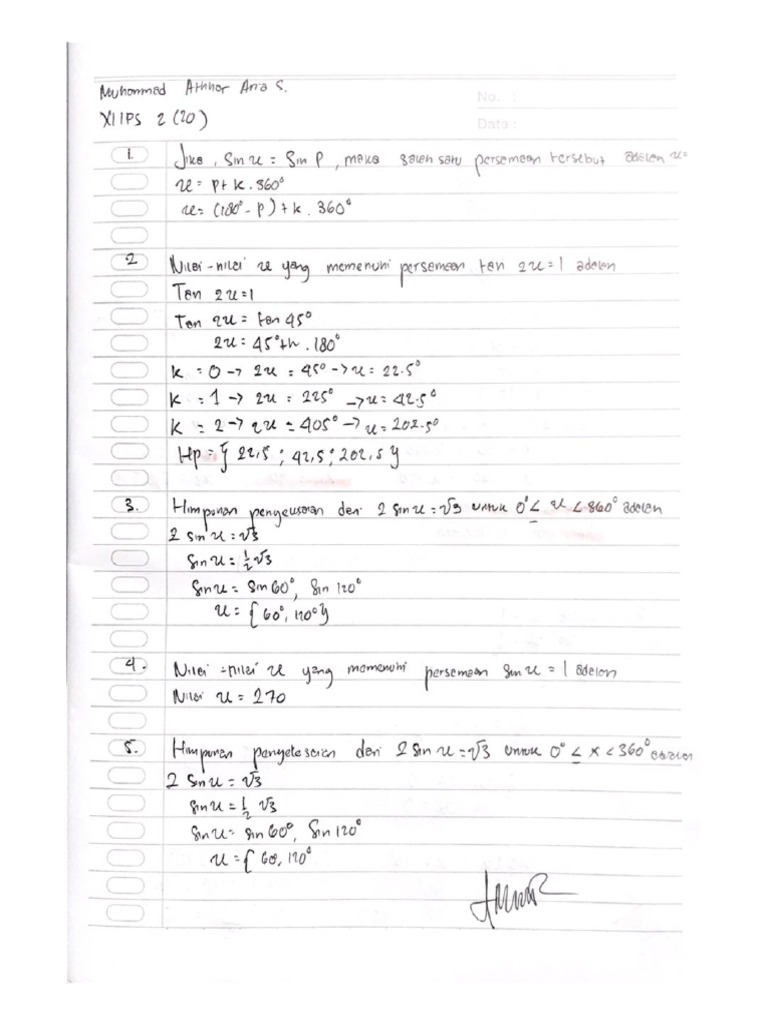 Muhammad Athhar Arra S.
No. :
XI IPS 2 (20)
Date :
1. Jika, Sin x = Sin P, maka salah satu persamaan tersebut adalah x=
x = P + k . 360°
x = (180° - P) + k . 360°
2 Nilai-nilai x yang memenuhi persamaan tan 2x = 1 adalah
Tan 2x = 1
Tan 2x = tan 45°
2x = 45° + h . 180°
k = 0 → 2x = 45° → x = 22.5°
k = 1 → 2x = 225° → x = 42.5°
k = 2 → 2x = 405° → x = 202.5°
Hp = { 22,5 ; 42,5 ; 202,5 }
3. Himpunan penyelesaian dari 2 sin x = √3 untuk 0° ≤ x < 360° adalah
2 sin x = √3
Sin x = ½ √3
Sin x = Sin 60°, Sin 120°
x = { 60°, 120° }
4. Nilai-nilai x yang memenuhi persamaan sin x = 1 adalah
Nilai x = 270
5. Himpunan penyelesaian dari 2 sin x = √3 untuk 0° ≤ x < 360° adalah
2 Sin x = √3
Sin x = ½ √3
Sin x = sin 60°, Sin 120°
x = { 60, 120°